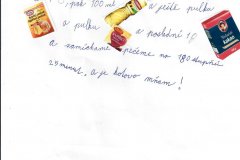 , pak 100 ml a ještě pulka
a pulka a poslední 1
a zamícháme pečeme na 180 stupňů
25 minut, a je hotovo mňam!
kakao